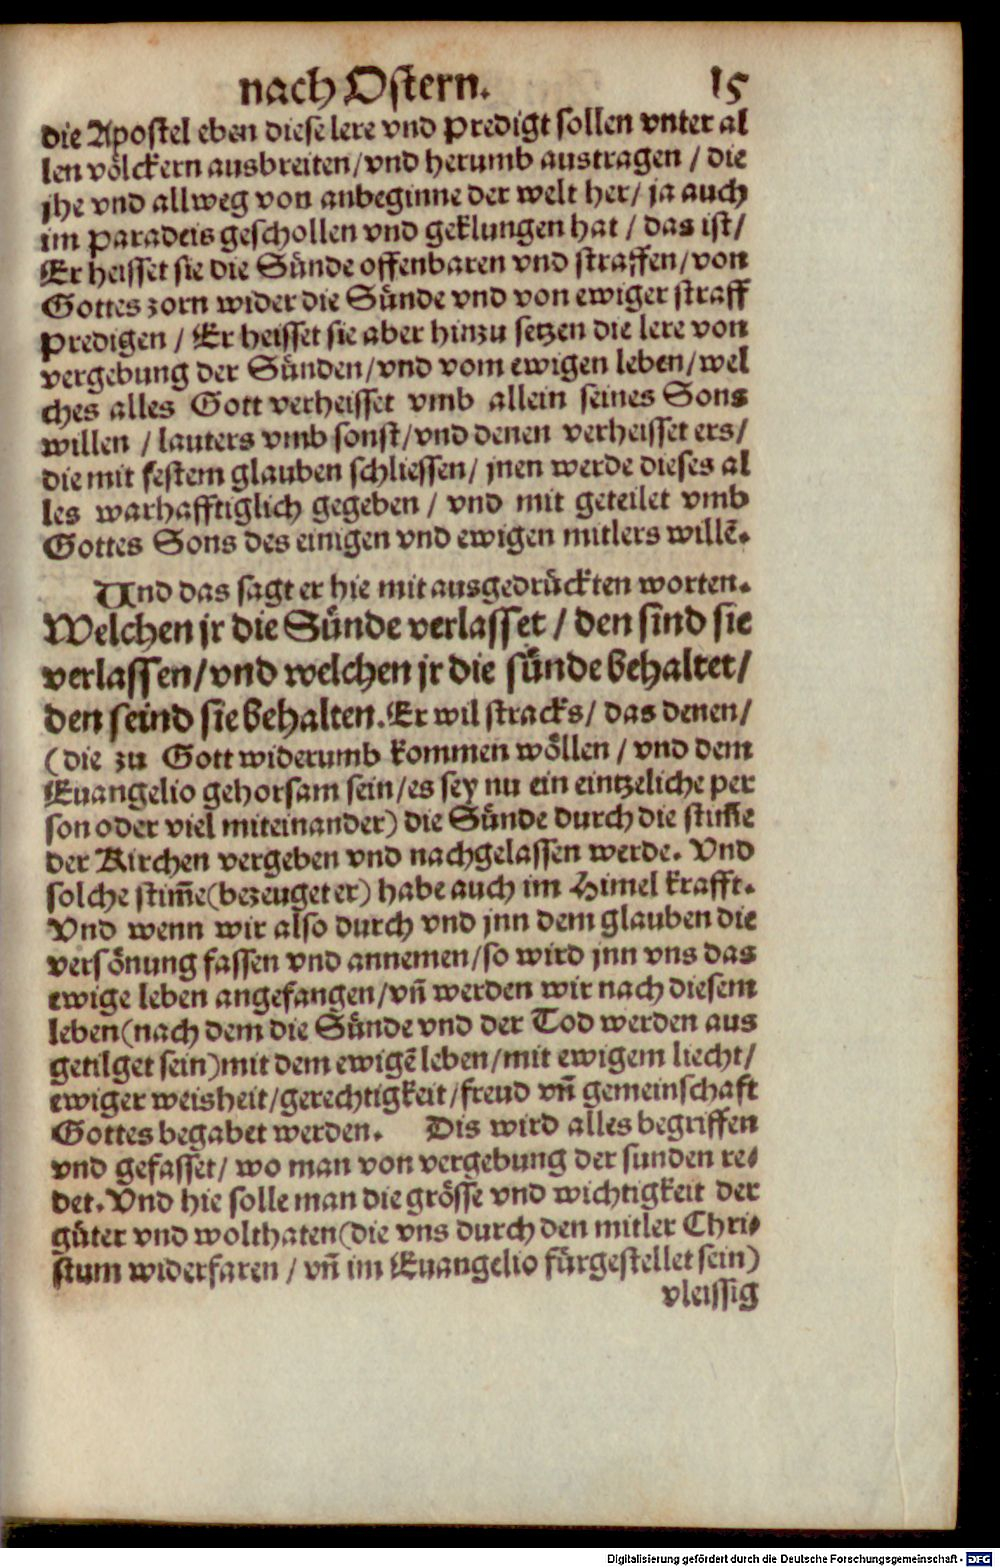 nach Ostern. 15
die Apostel eben diese lere vnd predigt sollen vnter al
len völckern ausbreiten/vnd herumb austragen / die
jhe vnd allweg von anbeginne der welt her/ ja auch
im paradeis geschollen vnd geklungen hat / das ist/
Er heisset sie die Sünde offenbaren vnd straffen/von
Gottes zorn wider die Sünde vnd von ewiger straff
predigen / Er heisset sie aber hinzu setzen die lere von
vergebung der Sünden/vnd vom ewigen leben/wel
ches alles Gott verheisset vmb allein seines Sons
willen / lauters vmb sonst/vnd denen verheisset ers/
die mit festem glauben schliessen/ jnen werde dieses al
les warhafftiglich gegeben / vnd mit geteilet vmb
Gottes Sons des einigen vnd ewigen mitlers willẽ.
Und das sagt er hie mit ausgedrückten worten.
Welchen jr die Sünde verlasset / den sind sie
verlassen/vnd welchen jr die sünde behaltet/
den seind sie behalten. Er wil stracks/ das denen/
(die zu Gott widerumb kommen wöllen / vnd dem
Euangelio gehorsam sein/es sey nu ein eintzeliche per
son oder viel miteinander) die Sünde durch die stim̃e
der Kirchen vergeben vnd nachgelassen werde. Vnd
solche stim̃e(bezeuget er) habe auch im Himel krafft.
Vnd wenn wir also durch vnd jnn dem glauben die
versönung fassen vnd annemen/so wird jnn vns das
ewige leben angefangen/vñ werden wir nach diesem
leben(nach dem die Sünde vnd der Tod werden aus
getilget sein)mit dem ewigẽ leben/mit ewigem liecht/
ewiger weisheit/gerechtigkeit/freud vñ gemeinschaft
Gottes begabet werden. Dis wird alles begriffen
vnd gefasset/ wo man von vergebung der sunden re⸗
det. Vnd hie solle man die grösse vnd wichtigkeit der
güter vnd wolthaten(die vns durch den mitler Chri⸗
stum widerfaren / vñ im Euangelio fürgestellet sein)
vleissig
Digitalisierung gefördert durch die Deutsche Forschungsgemeinschaft - DFG